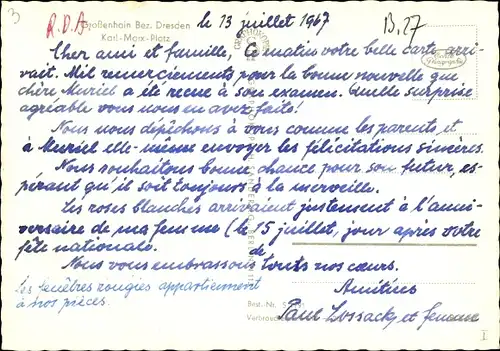 3
R.D.A.
Großenhain Bez. Dresden
Karl-Marx-Platz
le 13 juillet 1967
B.27
Cher ami et famille, Ce matin votre belle carte arri-
vait. Mil remerciements pour la bonne nouvelle que
chère Muriel a été recue à son examen. Quelle surprise
agréable vous nous en avez faite!
Nous nous dépêchons à vous comme les parents et
à Muriel elle-même envoyer les félicitations sincères.
Nous souhaitons bonne chance pour son futur, es-
pérant qu'il soit toujours à la merveille.
Les roses blanches arrivaient justement à l'anni-
versaire de ma femme (le 15 juillet, jour après votre
fête nationale.
Nous vous embrassons de touts nos cœurs.
Les fenêtres rougies appartiennent
à nos pièces.
Amitiées
Paul Lossack et femme
Best.-Nr.
Verbrauch
I